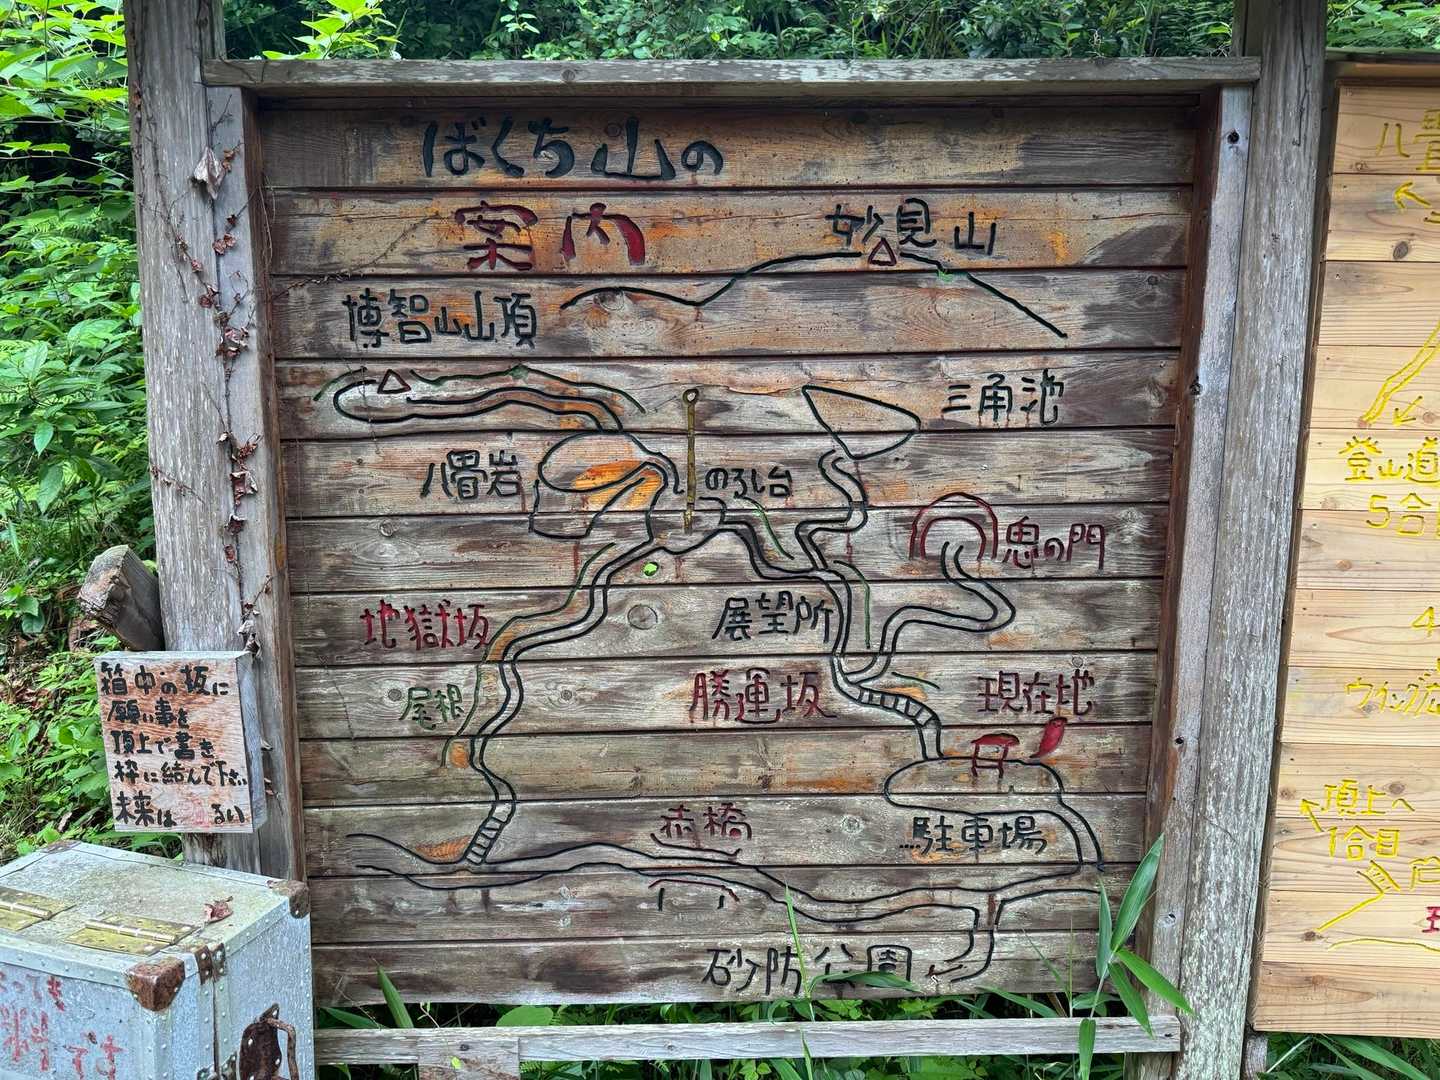 ばくち山の
案内
妙見山
博智山山頂
三角池
八畳岩
のろし台
鬼の門
地獄坂
展望所
尾根
勝運坂
現在地
赤橋
駐車場
砂防公園
箱中の板に
願い事を
頂上で書き
枠に結んで下さい
未来は るい
八畳
登山道
5合目
4
頂上へ
1合目
です